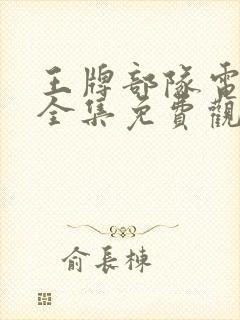 王牌部隊電
全集免費觀
俞長棟